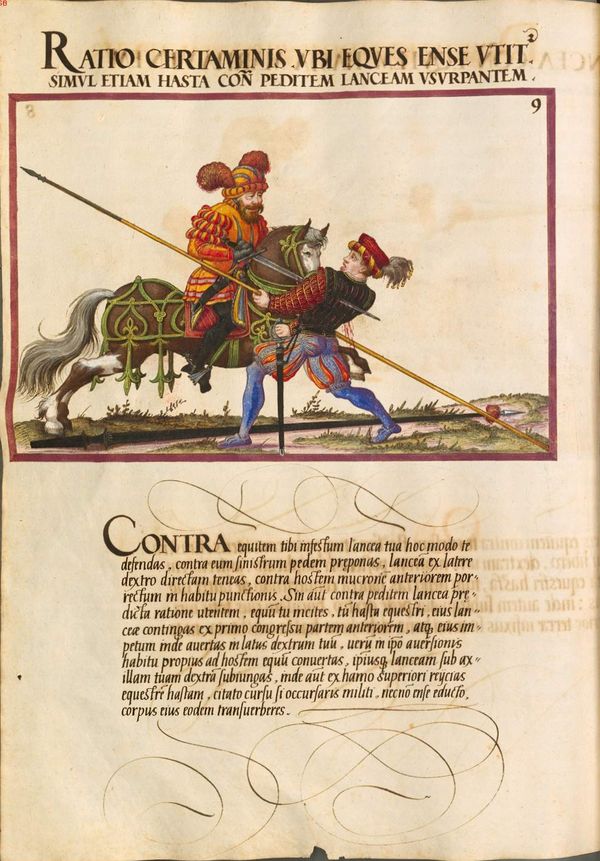 RATIO CERTAMINIS .VBI EQVES ENSE VTIT².
SIMVL ETIAM HASTA COÑ PEDITEM LANCEAM VSVRPANTEM.
9
CONTRA equitem tibi infestum lancea tua hoc modo te
defendas, contra eum sinistrum pedem preponas, lanceã ex latere
dextro directam teneas, contra hostem mucrone anteriorem por-
rectum in habitu punctionis. Sin aũt contra peditem lancea prę-
dicta ratione utentem, equũ tu incites, tũ hasta equestri, eius lan-
ceæ contingas ex primo congressu partem anteriorem, atq, eius im-
petum inde auertas in latus dextrum tuũ, uerũ in ipõ auersionis
habitu propius ad hostem equũ conuertas, ipiusq, lanceam sub ax-
illam tuam dextrã subiungas, inde aũt ex hamo superiori reijcias
equestrẽ hastam, citato cursu si occursaris militi, necnõ ense educto,
corpus eius eodem transuerberes.